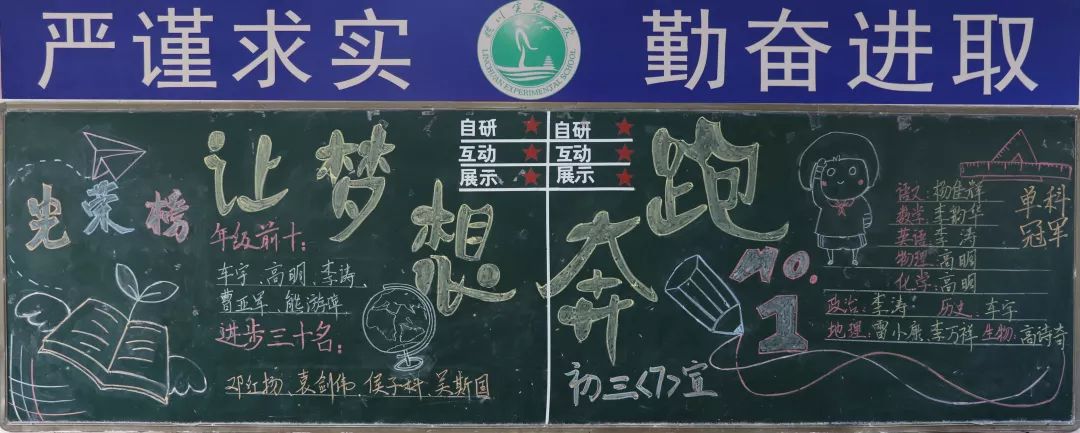 严谨求实
临川实验学校
LINCHUAN EXPERIMENTAL SCHOOL
勤奋进取
自研
互动
展示
自研
互动
展示
让梦想奔跑
光荣榜
年级前十：
车宇、高明、李涛、
曹亚军、熊游坤
进步三十名：
邓红杨、袁剑伟、侯子科、吴斯国
No.
1
初三<7>宣
单科
冠军
语文：杨佳祥
数学：李韵华
英语：李涛
物理：高明
化学：高明
政治：李涛 历史：车宇
地理：雷小康 李万祥 生物：高诗奇